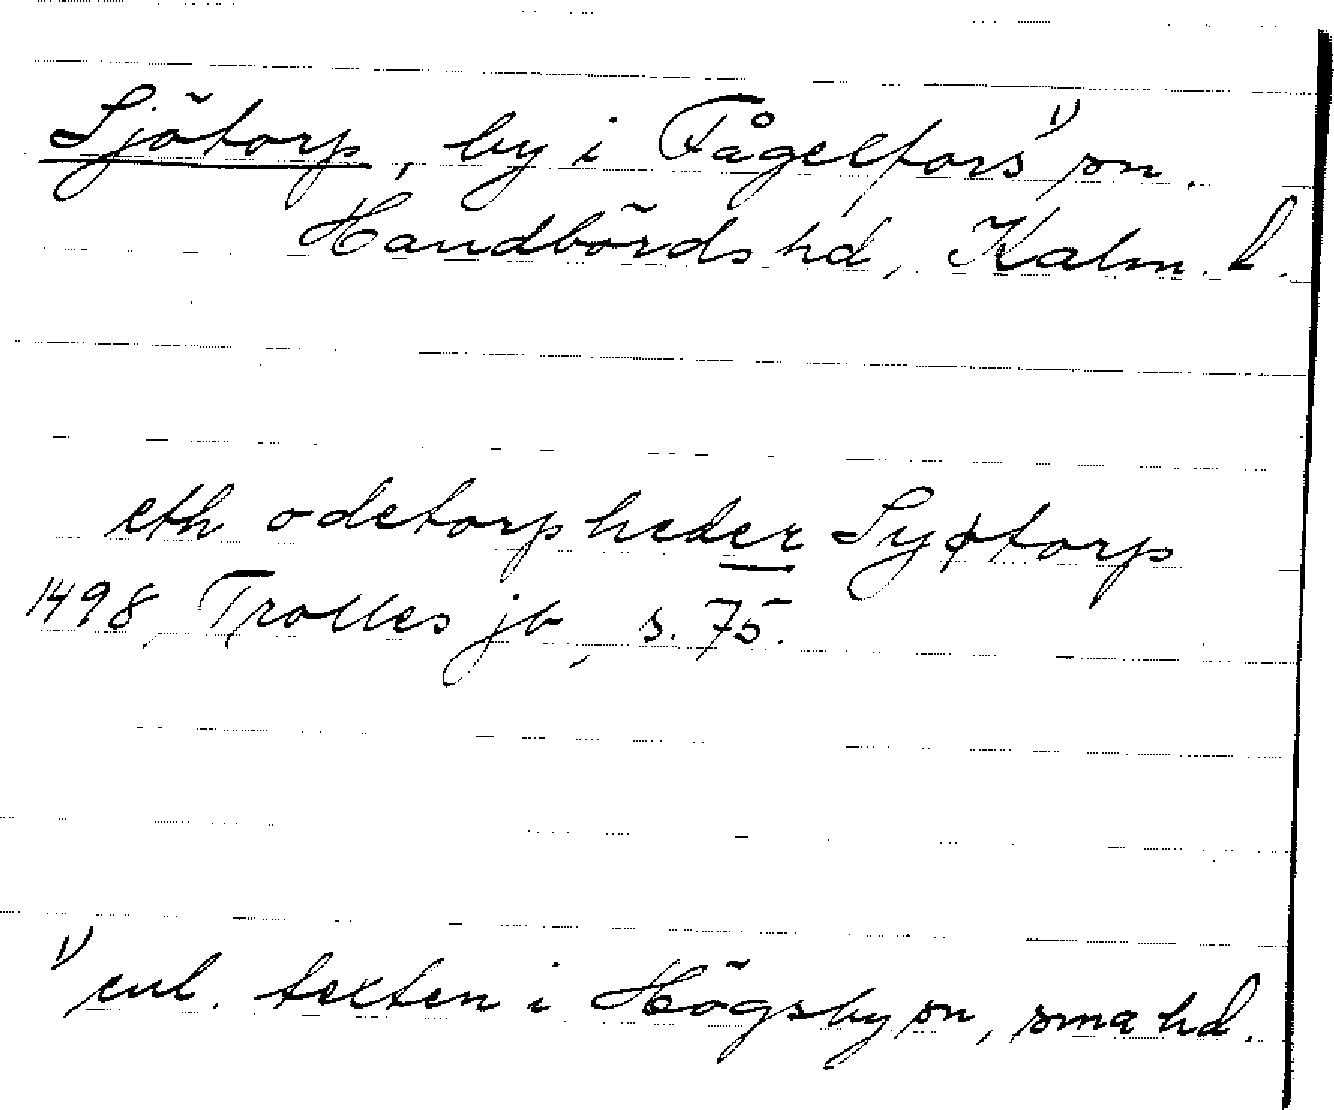 Sjötorp, by i Fågelfors¹⁾ sn.
Handbörds hd, Kalm. l.
eth odetorp heder Syøtorp
1498, Trolles jb, s. 75.
¹⁾ enl. texten i Högsby sn, sma hd.